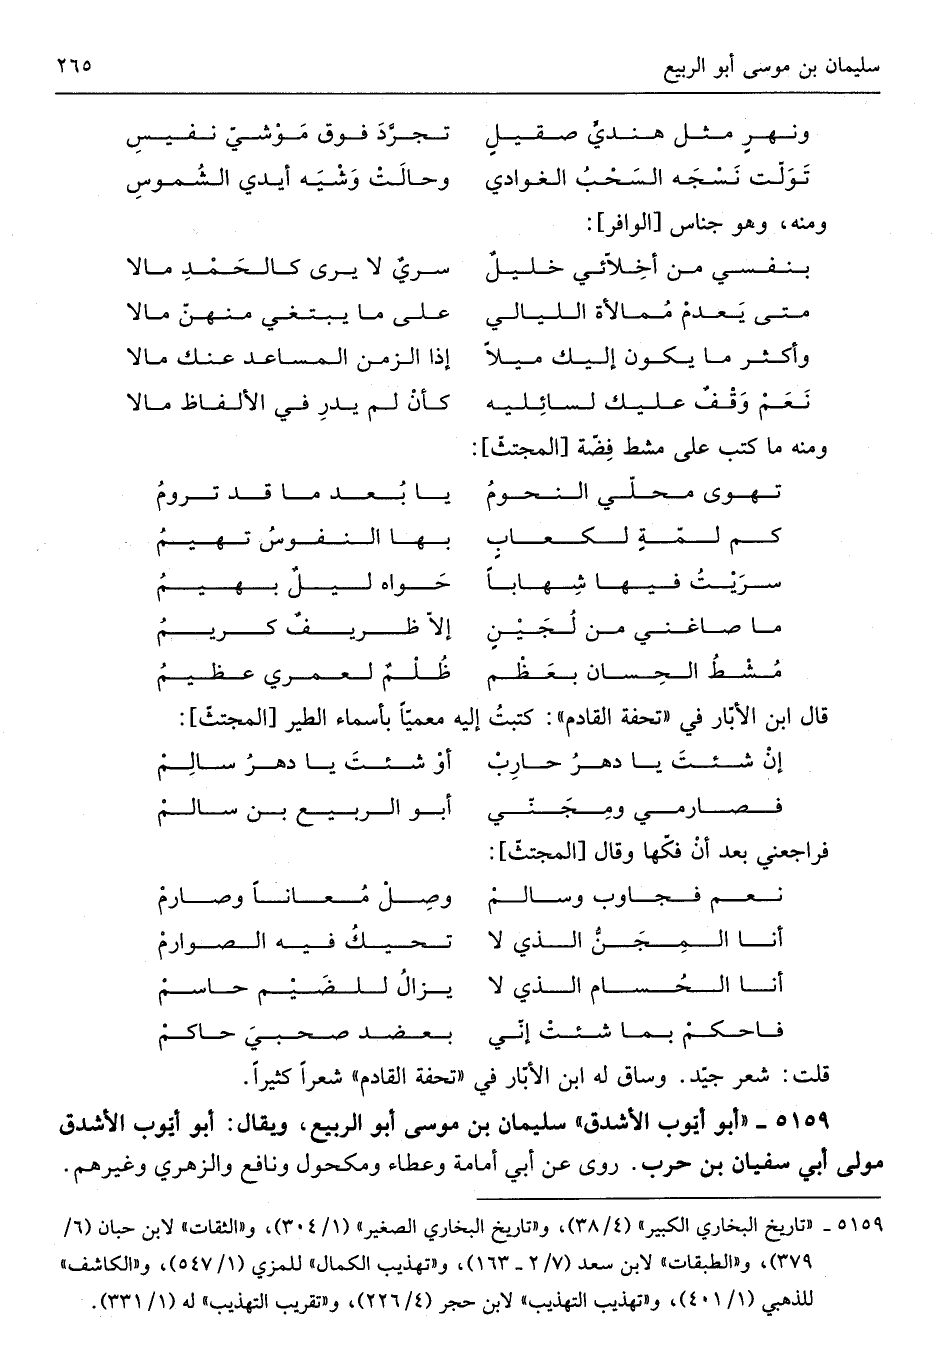 سليمان بن موسى أبو الربيع ٢٦٥
ونهرٍ مثل هنديٍّ صقيلٍ تجرَّدَ فوق مَوْشيّ نفيسِ
تَوَلّت نَسْجَه السُحْبُ الغوادي وحالَتْ وَشْيَه أيدي الشُموسِ
ومنه، وهو جناس [الوافر]:
بنفسي من أخِلاّئي خليلٌ سريٌّ لا يرى كالحَمْدِ مالا
متى يَعدمْ مُمالأة الليالي على ما يبتغي منهنّ مالا
وأكثر ما يكون إليك ميلاً إذا الزمن المساعد عنك مالا
نَعَمْ وَقْفٌ عليك لسائليه كأنْ لم يدرِ في الألفاظ مالا
ومنه ما كتب على مشط فِضّة [المجتثّ]:
تهوى محلّي النجومُ يا بُعد ما قد ترومُ
كم لمّةٍ لكعابٍ بها النفوسُ تهيمُ
سرَيْتُ فيها شِهاباً حَواه ليلٌ بهيمُ
ما صاغني من لُجَيْنٍ إلاّ ظريفٌ كريمُ
مُشْطُ الحِسان بعَظْمٍ ظُلْمٌ لعمري عظيمُ
قال ابن الأبّار في «تحفة القادم»: كتبتُ إليه معميّاً بأسماء الطير [المجتثّ]:
إنْ شئتَ يا دهرُ حاربْ أوْ شئتَ يا دهرُ سالِمْ
فصارمي ومِجَنّي أبو الربيع بن سالمْ
فراجعني بعد أنْ فكّها وقال [المجتثّ]:
نعم فجاوب وسالمْ وصِلْ مُعاناً وصارمْ
أنا المِجَنُّ الذي لا تحيكُ فيه الصوارمْ
أنا الحُسام الذي لا يزالُ للضَيْم حاسمْ
فاحكمْ بما شئتْ إنّي بعضد صحبيَ حاكمْ
قلت: شعر جيّد. وساق له ابن الأبّار في «تحفة القادم» شعراً كثيراً.
٥١٥٩ ـ «أبو أيّوب الأشدق» سليمان بن موسى أبو الربيع، ويقال: أبو أيّوب الأشدق
مولى أبي سفيان بن حرب. روى عن أبي أمامة وعطاء ومكحول ونافع والزهري وغيرهم.
٥١٥٩ ـ «تاريخ البخاري الكبير» (٣٨/٤)، و«تاريخ البخاري الصغير» (٣٠٤/١)، و«الثقات» لابن حبان (٦/
٣٧٩)، و«الطبقات» لابن سعد (٢/٧ ـ ١٦٣)، و«تهذيب الكمال» للمزي (٥٤٧/١)، و«الكاشف»
للذهبي (٤٠١/١)، و«تهذيب التهذيب» لابن حجر (٢٢٦/٤)، و«تقريب التهذيب» له (٣٣١/١).